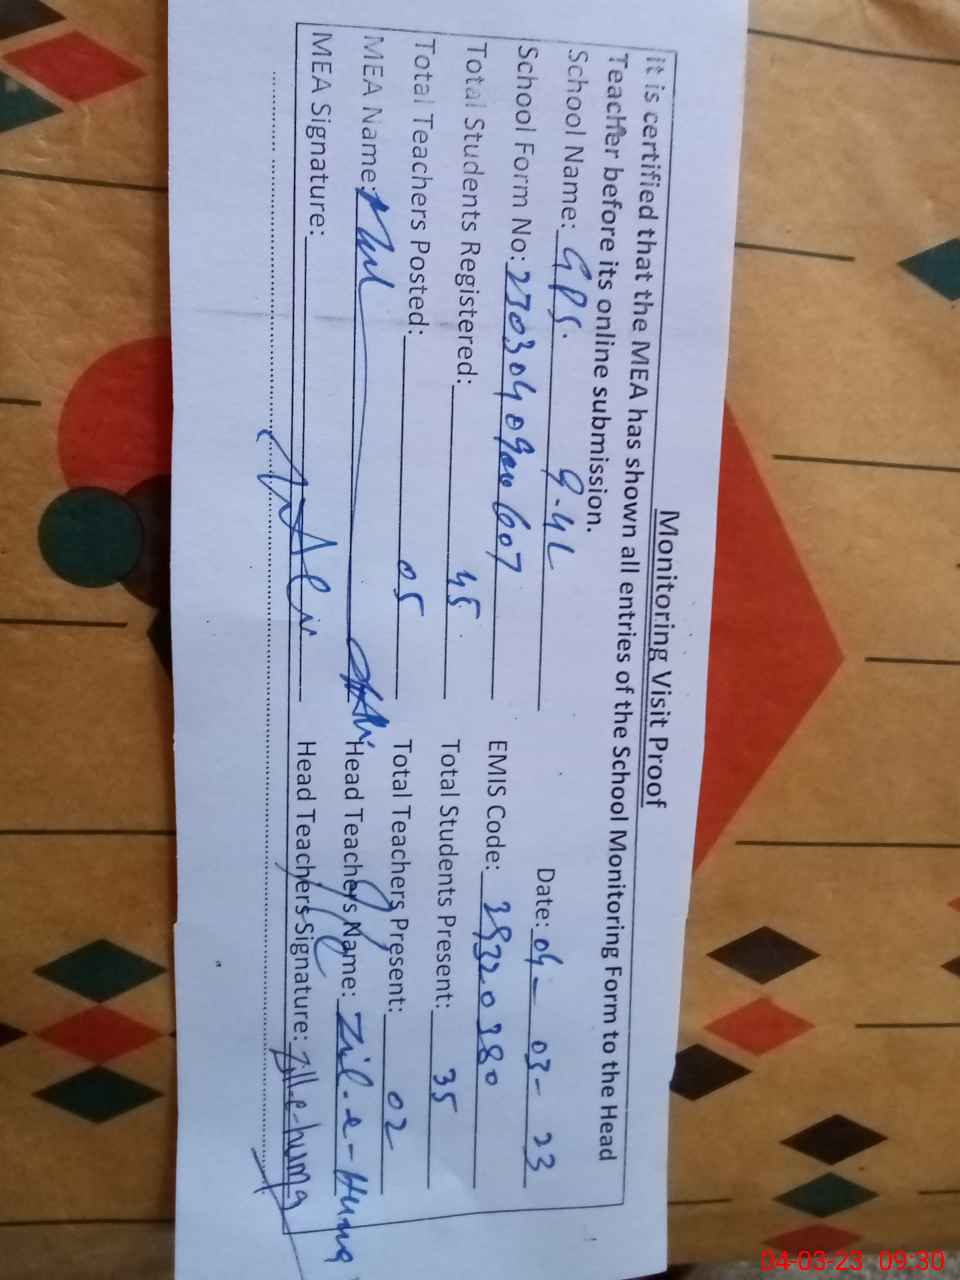 Monitoring Visit Proof
it is certified that the MEA has shown all entries of the School Monitoring Form to the Head
Teacher before its online submission.
School Name: GPS. 9-4L Date: 04-03-23
School Form No: EMIS Code: 39320380
Total Students Registered: 45 Total Students Present: 35
Total Teachers Posted: 05 Total Teachers Present: 02
MEA Name: Head Teachers Name: Zil-e-Huma
MEA Signature: Head Teachers Signature: Zill-e-huma
04-03-23 09:30